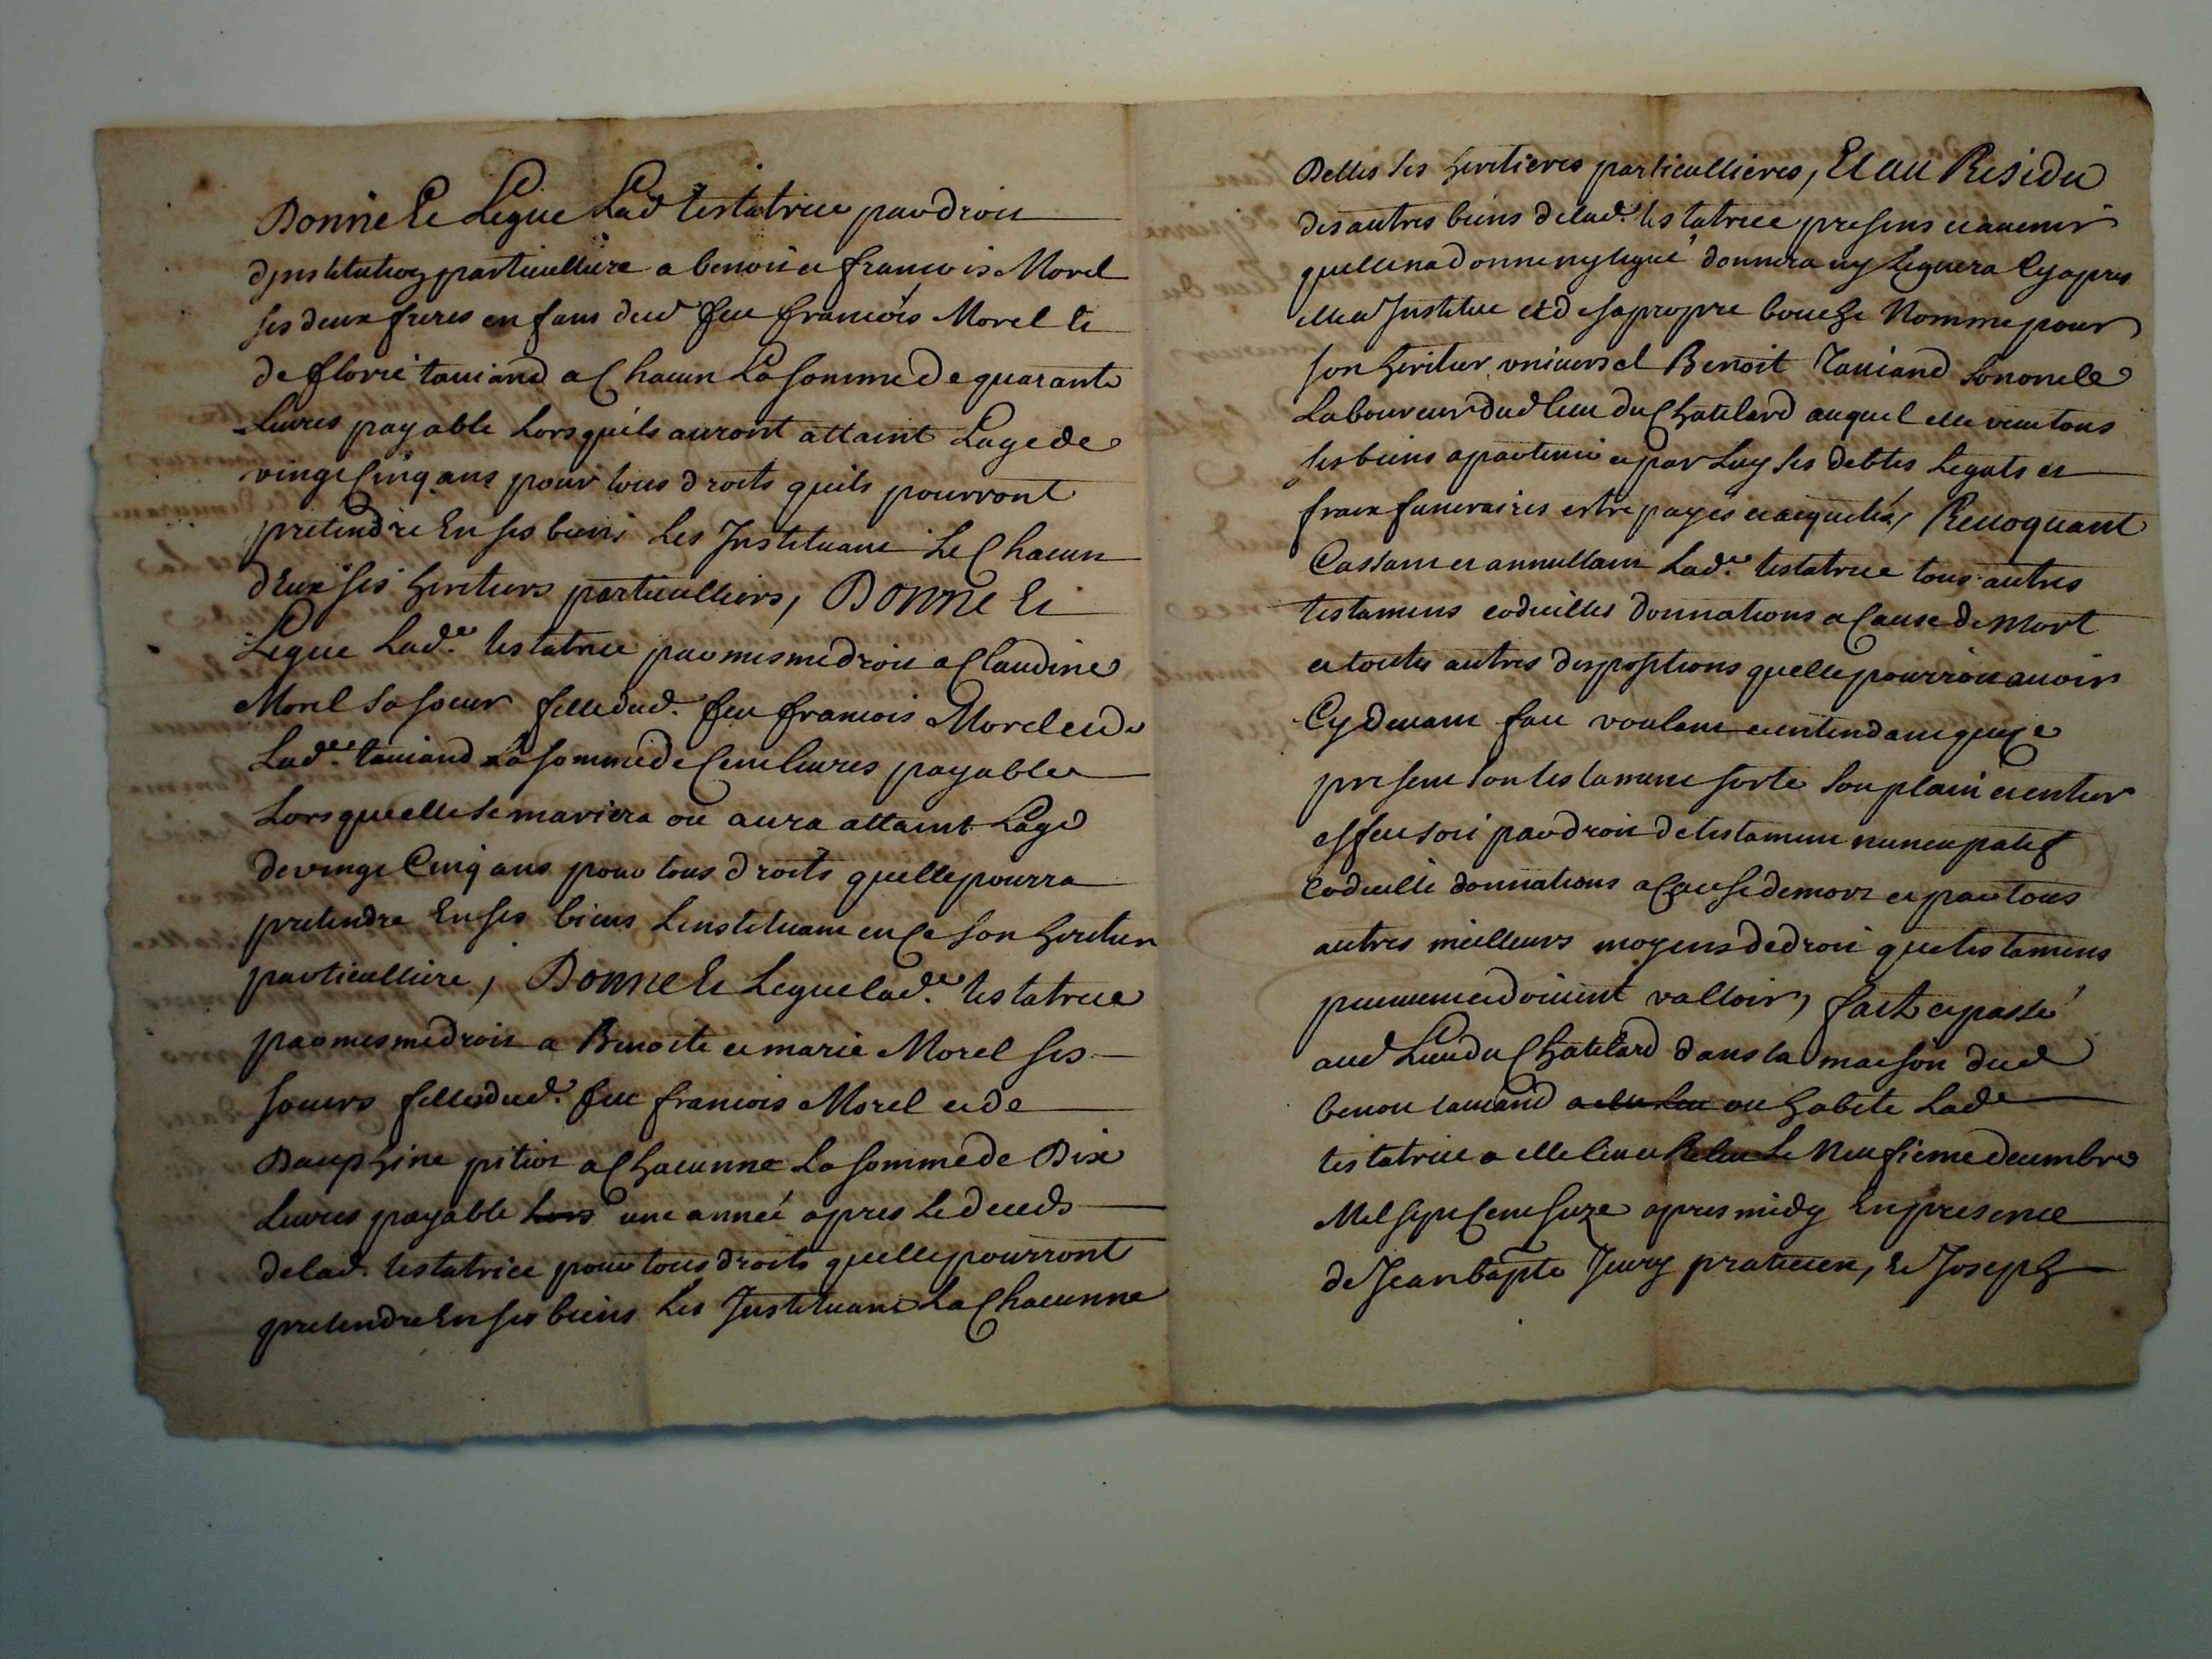 Donne Et Legue Lad testatrice par droit
dJnstitution particulliere a benoit et francois Morel
ses deux freres enfans dud feu francois Morel et
de florie taviand a Chacun La somme de quarante
Livres payable Lors quils auront attaint Lage de
vingt Cinq ans pour tous droits quils pourront
pretendre En ses biens Les Jnstituant Et Chacun
dEux ses heritiers particulliers, Donne Et
Legue Lad.e testatrice par mesme droit a Claudine
Morel sa soeur fille dud. feu francois Morel et de
Lad.e taviand La somme de Cent Livres payable
Lors quelle se mariera ou aura attaint Lage
de vingt Cinq ans pour tous droits quelle pourra
pretendre En ses biens Linstituant en Ce son heritiere
particulliere, Donne Et Legue lad.e testatrice
par mesme droit a Benoite et marie Morel ses
soeurs filles dud. feu francois Morel et de
Dauphine pitiot a Chacunne La somme de Dix
Livres payable Lors une année apres Le deceds
de lad. testatrice pour tous droits quelle pourront
pretendre En ses biens Les Jnstituant La Chacunne
Delles ses heritieres particullieres, Et au Residu
des autres biens de lad.e testatrice presens et avenir
quelle na donne ny legué donnera ny Leguera Cy apres
elle a Jnstitue et de sa propre bouche Nomme pour
son heritier universel Benoit Taviand son oncle
Laboureur dud lieu du Chatelard auquel elle veut tous
ses biens apartenir et par Luy ses debtes Legats et
fraix funeraires estre payés et acquités, Revoquant
Cassant et annullant Lad.e testatrice tous autres
testamens codicilles donnations a Cause de Mort
et toutes autres dispositions quelle pourroit avoir
Cy devant fait voulant et entendant que Ce
present son testament sorte son plain et entier
effeu soit par droit de testament nuncupatif
Codicille donnations a Cause de mort et par tous
autres meilleurs moyens de droit que testamens
peuvent et doivent valloir, fait et passé
aud Lieu du Chatelard dans la maison dud
benoit taviand ou habite Lad.e
testatrice a elle leu et Releu Le Neufieme decembre
Mil sept Cent seze apres midy En presence
de Jean bapte Jury praticien, Et Joseph